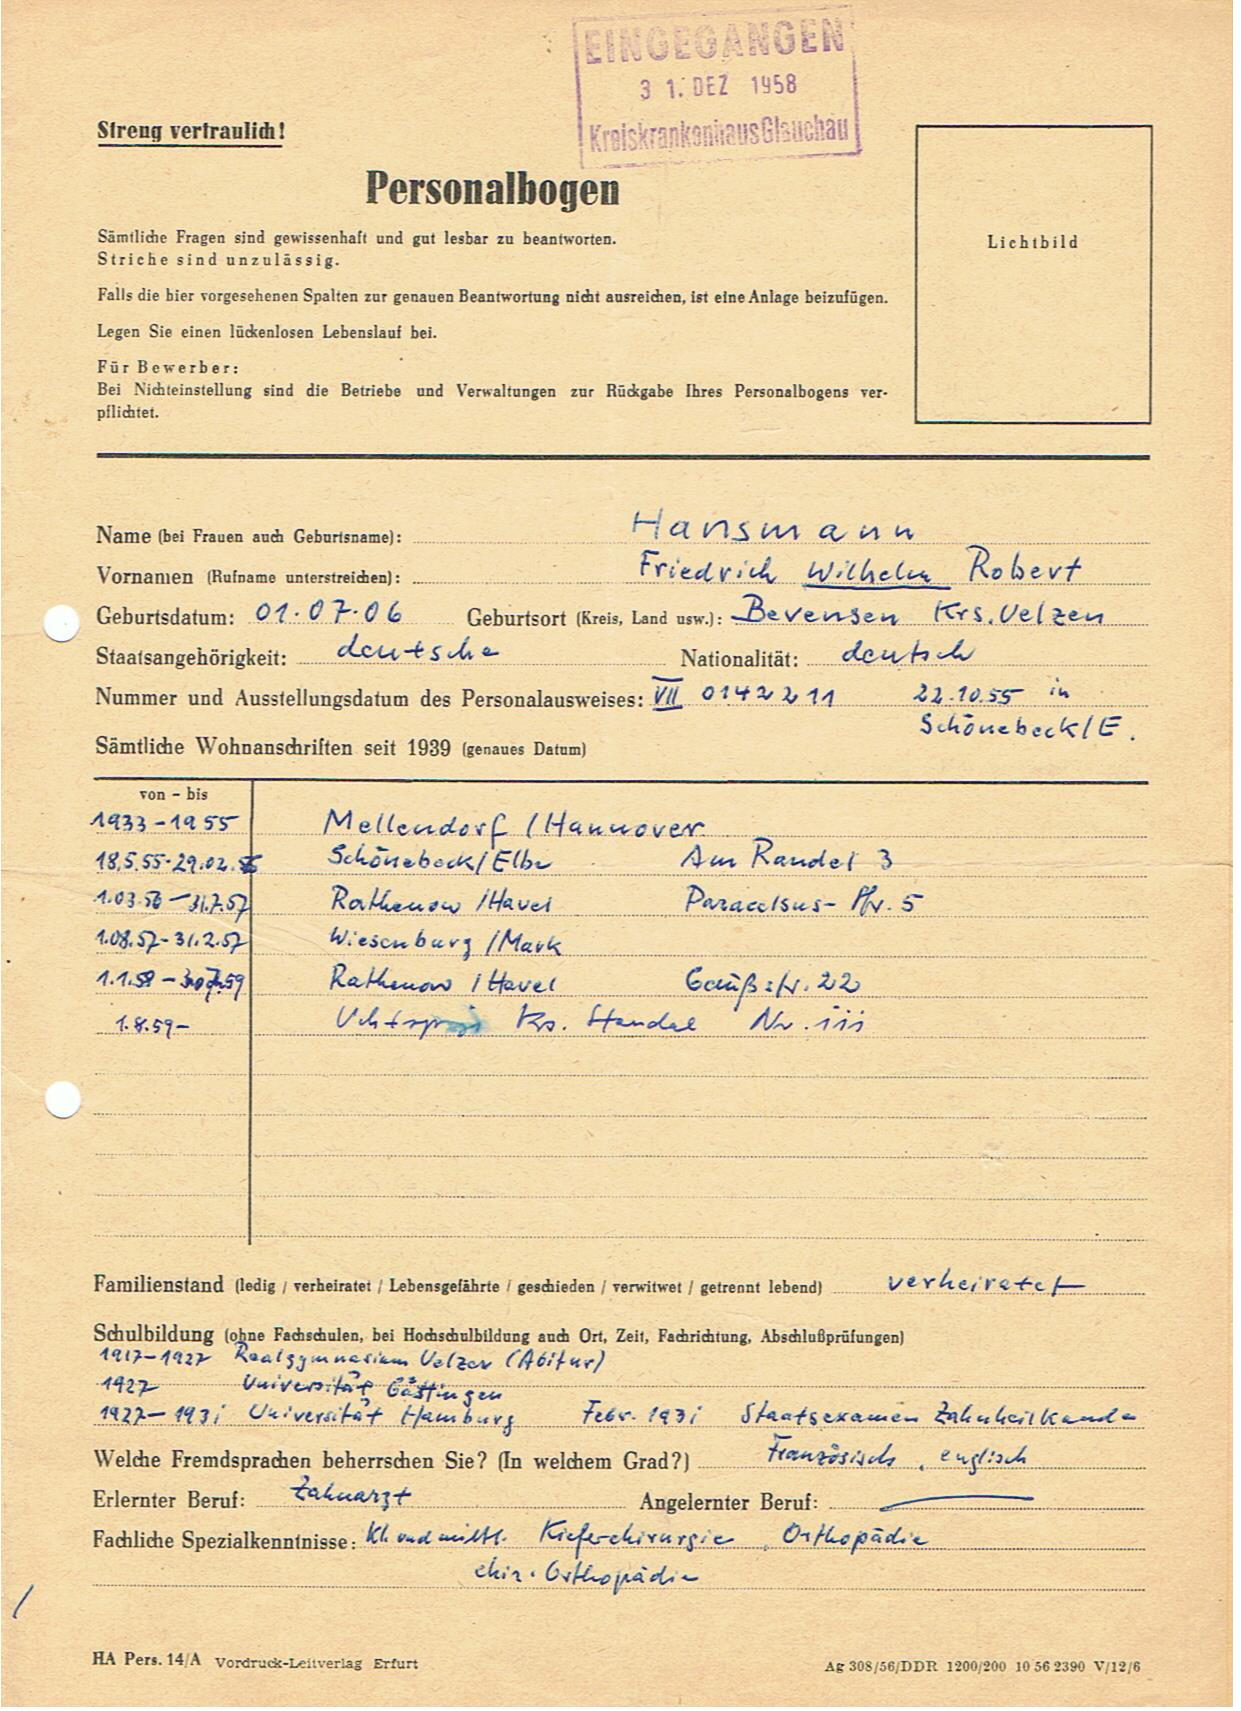 EINGEGANGEN
31. DEZ 1958
Kreiskrankenhaus Glauchau
Streng vertraulich!
Personalbogen
Sämtliche Fragen sind gewissenhaft und gut lesbar zu beantworten.
Striche sind unzulässig.
Falls die hier vorgesehenen Spalten zur genauen Beantwortung nicht ausreichen, ist eine Anlage beizufügen.
Legen Sie einen lückenlosen Lebenslauf bei.
Für Bewerber:
Bei Nichteinstellung sind die Betriebe und Verwaltungen zur Rückgabe Ihres Personalbogens ver-
pflichtet.
Lichtbild
Name (bei Frauen auch Geburtsname): Hansmann
Vornamen (Rufname unterstreichen): Friedrich Wilhelm Robert
Geburtsdatum: 01.07.06 Geburtsort (Kreis, Land usw.): Bevensen Krs. Uelzen
Staatsangehörigkeit: deutsche Nationalität: deutsch
Nummer und Ausstellungsdatum des Personalausweises: VII 0142211 22.10.55 in
Schönebeck/E.
Sämtliche Wohnanschriften seit 1939 (genaues Datum)
von - bis
1933-1955 Mellendorf / Hannover
18.5.55-29.02.56 Schönebeck / Elbe Am Randel 3
1.03.56-31.7.57 Rathenow / Havel Paracelsus- 5
1.08.57-31.2.57 Wiesenburg / Mark
1.1.58 - Rathenow / Havel Gaußstr. 22
1.8.59- Uchtspringe Krs. Stendal Nr. 111
Familienstand (ledig / verheiratet / Lebensgefährte / geschieden / verwitwet / getrennt lebend) verheiratet
Schulbildung (ohne Fachschulen, bei Hochschulbildung auch Ort, Zeit, Fachrichtung, Abschlußprüfungen)
1917-1927 Realgymnasium Uelzen (Abitur)
1927 Universität Göttingen
1927-1931 Universität Hamburg Febr. 1931 Staatsexamen Zahnheilkunde
Welche Fremdsprachen beherrschen Sie? (In welchem Grad?) Französisch, englisch
Erlernter Beruf: Zahnarzt Angelernter Beruf:
Fachliche Spezialkenntnisse: Kieferchirurgie, Orthopädie
chir. Orthopädie
HA Pers. 14/A Vordruck-Leitverlag Erfurt
Ag 308/56/DDR 1200/200 10 56 2390 V/12/6